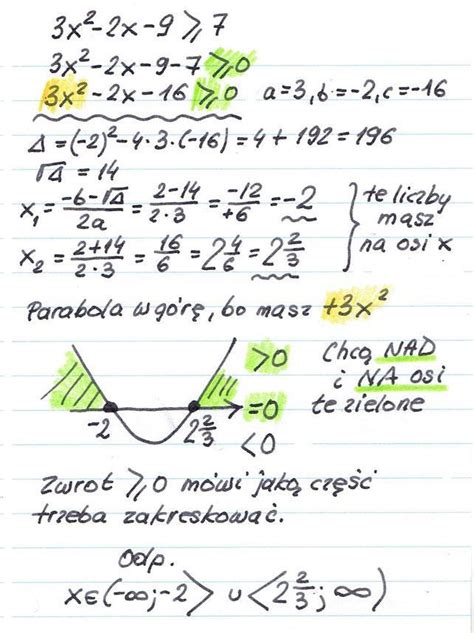 3x²-2x-9⩾7
3x²-2x-9-7⩾0
3x²-2x-16⩾0 a=3, b=-2, c=-16
Δ=(-2)²-4·3·(-16)=4+192=196
√Δ=14
x₁=(-b-√Δ)/2a=(2-14)/(2·3)=(-12)/(+6)=-2
x₂=(2+14)/(2·3)=16/6=2 4/6=2 2/3
te liczby
masz
na osi x
Parabola w górę, bo masz +3x²
>0
=0
<0
-2
2 2/3
Chcą NAD
i NA osi
te zielone
Zwrot ⩾0 mówi jaką część
trzeba zakreskować.
Odp.
x∈(-∞;-2> ∪ <2 2/3;∞)